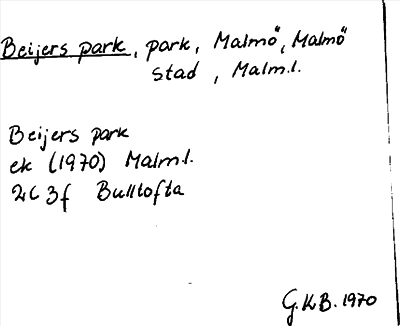 Beijers park, park, Malmö, Malmö
stad, Malm.l.
Beijers park
ek (1970) Malm.l.
2C 3f Bulltofta
G.K.B. 1970